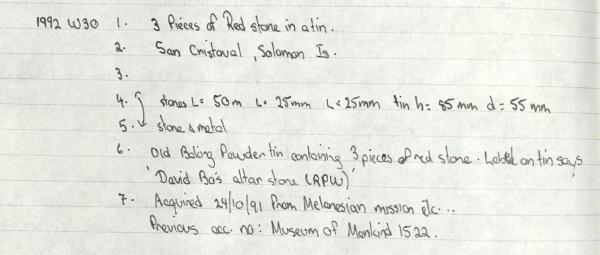 1992 W30 1. 3 Pieces of Red stone in a tin.
2. San Cristoval, Solomon Is.
3.
4. stones L= 50m L= 25mm L= 25mm tin h= 85mm d= 55mm
5. stone & metal
6. Old Baking Powder tin containing 3 pieces of red stone. Label on tin says
'David Bo's altar stone (APW)'
7. Acquired 24/10/91 From Melanesian mission etc...
Previous acc. no: Museum of Mankind 1522.